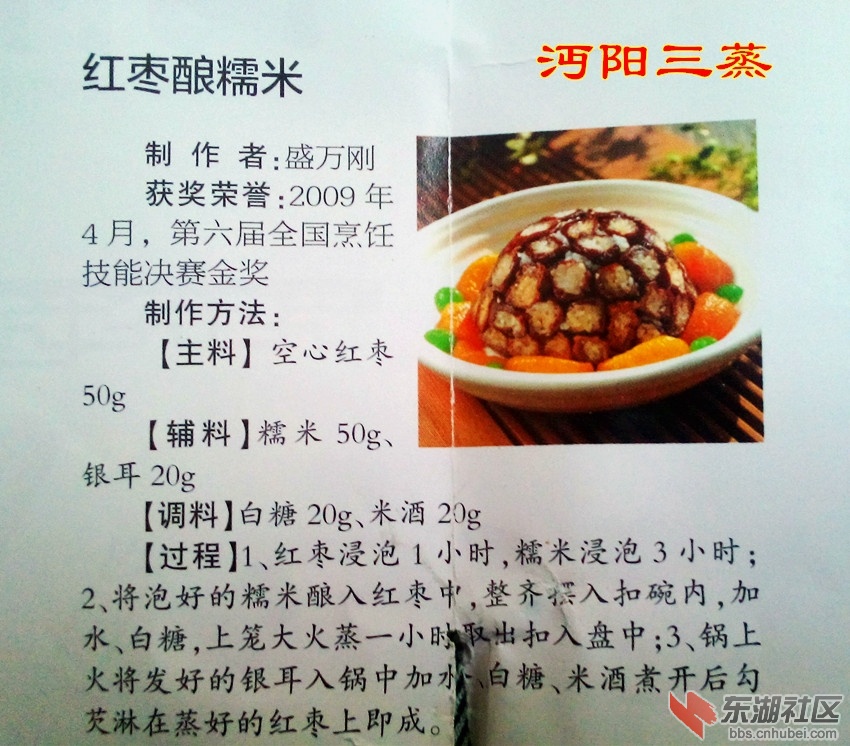 红枣酿糯米
沔阳三蒸
制作者:盛万刚
获奖荣誉:2009年
4月，第六届全国烹饪
技能决赛金奖
制作方法:
【主料】空心红枣
50g
【辅料】糯米 50g、
银耳 20g
【调料】白糖 20g、米酒 20g
【过程】1、红枣浸泡 1 小时,糯米浸泡 3 小时;
2、将泡好的糯米酿入红枣中,整齐摆入扣碗内,加
水、白糖,上笼大火蒸一小时取出扣入盘中;3、锅上
火将发好的银耳入锅中加水、白糖、米酒煮开后勾
芡淋在蒸好的红枣上即成。
东湖社区
bbs.cnhubei.com